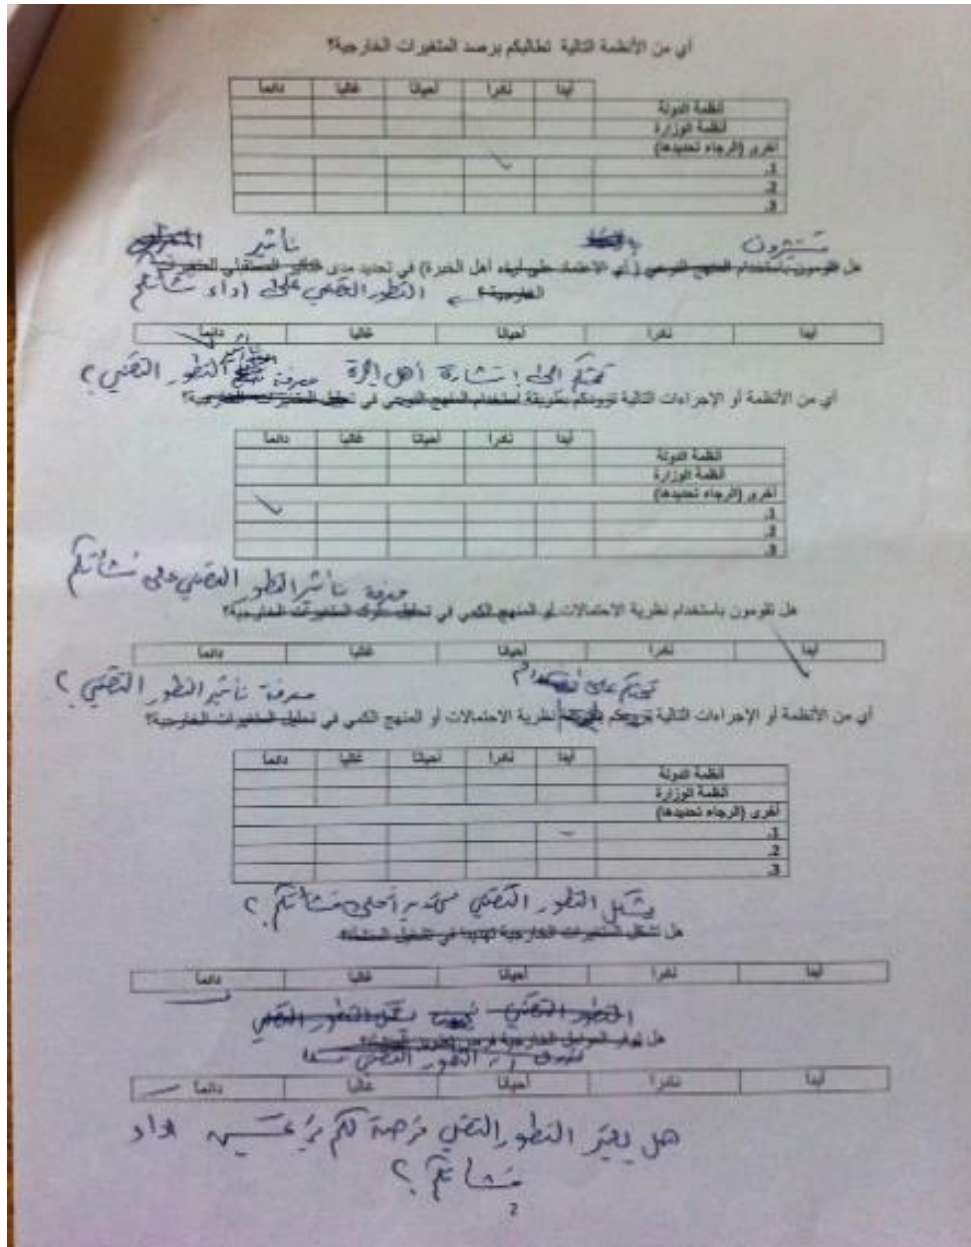 أي من الأنظمة التالية تطالبكم برصد المتغيرات الخارجية؟
أبدا نادرا أحيانا غالبا دائما
أنظمة الدولة
أنظمة الوزارة
أخرى (الرجاء تحديدها)
1.
2.
3.
تأثير
هل تقومون باستخدام المنهج النوعي (أي الاعتماد على آراء أهل الخبرة) في تحديد مدى التأثير المستقبلي للمتغيرات
الخارجية؟ التطور التقني على أداء منشأتكم
أبدا نادرا أحيانا غالبا دائما
استشارة أهل الخبرة معرفة تأثير التطور التقني؟
أي من الأنظمة أو الإجراءات التالية تزودكم بطريقة استخدام المنهج النوعي في تحليل المتغيرات الخارجية؟
أبدا نادرا أحيانا غالبا دائما
أنظمة الدولة
أنظمة الوزارة
أخرى (الرجاء تحديدها)
1.
2.
3.
معرفة تأثير التطور التقني على منشأتكم
هل تقومون باستخدام نظرية الاحتمالات أو المنهج الكمي في تحليل سلوك المتغيرات الخارجية؟
أبدا نادرا أحيانا غالبا دائما
معرفة تأثير التطور التقني؟
أي من الأنظمة أو الإجراءات التالية تزودكم بطريقة نظرية الاحتمالات أو المنهج الكمي في تحليل المتغيرات الخارجية؟
أبدا نادرا أحيانا غالبا دائما
أنظمة الدولة
أنظمة الوزارة
أخرى (الرجاء تحديدها)
1.
2.
3.
يشكل التطور التقني تهديدا على منشأتكم؟
هل تشكل المتغيرات الخارجية تهديدا في تشغيل المنشأة؟
أبدا نادرا أحيانا غالبا دائما
التطور التقني التطور التقني
هل توفر العوامل الخارجية فرص
التطور التقني
أبدا نادرا أحيانا غالبا دائما
هل يعتبر التطور التقني فرصة لكم في تحسين أداء
منشأتكم؟
2